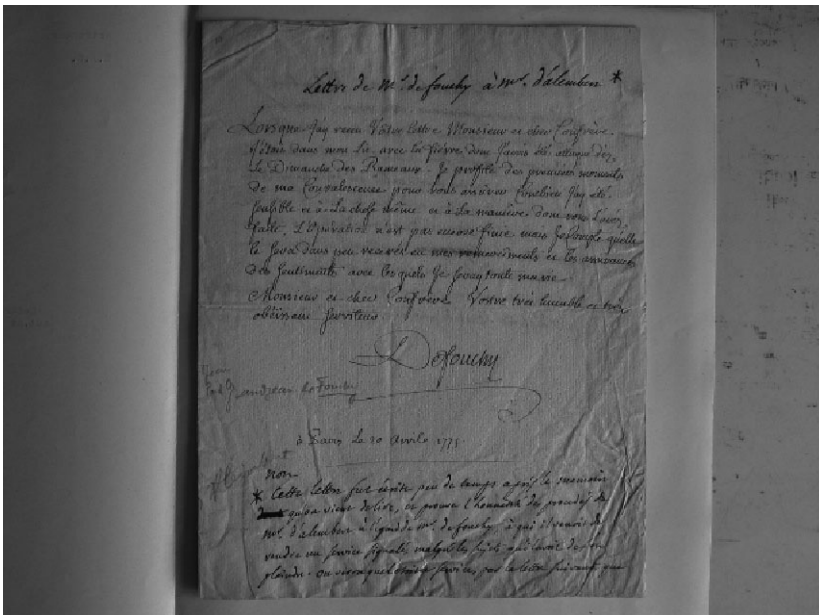 Lettre de Mr. de fouchy à mr. d'alembert *
Lorsque J'ay receu Vôtre lettre Monsieur et cher Confrère
J'étois dans mon Lit avec la fièvre dont J'avois été attaqué dez
Le Dimanche des Rameaux. Je profite des premiers moments
de ma Convalescence pour vous assurer combien J'ay été
sensible et à La chose même et à La manière dont vous L'avés
faite, L'opération n'est pas encore finie mais J'espère qu'elle
le sera dans peu recevés en mes remerciements et les assurances
des sentiments avec les quels Je seray toute ma vie
Monsieur et cher Confrère Votre très humble et très
obéissant serviteur
Defouchy
Jean
Paul Grandjean de Fouchy
à Paris Le 20 Avrile 1775
non
* Cette lettre fut écrite peu de temps après le memoire
qu'on vient de lire, et prouve l'honnêteté des procédés de
mr. d'alembert à l'égard de mr. de fouchy, à qui il venoit de
rendre un service signalé, malgré les sujets qu'il avoit de s'en
plaindre. On verra quel étoit ce service, par la lettre suivante que